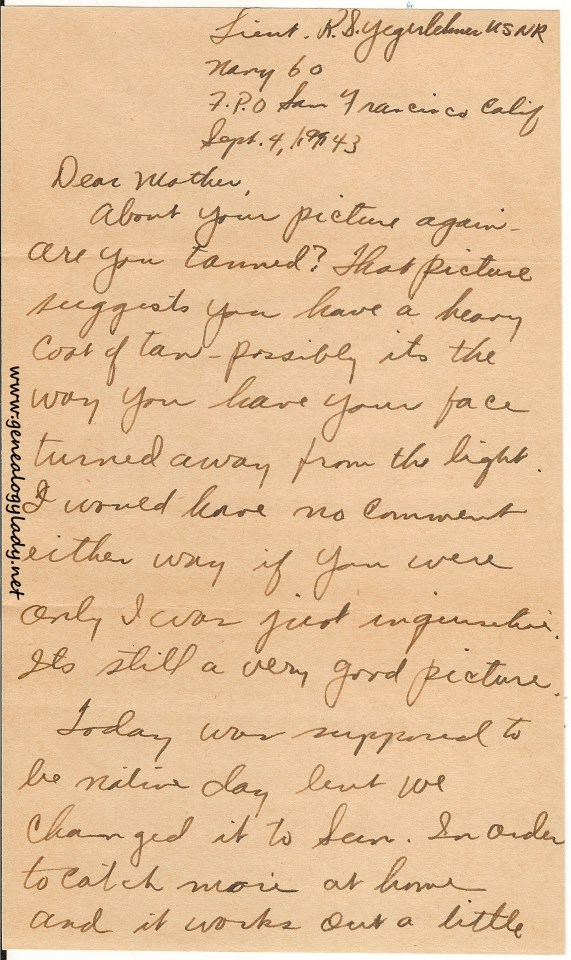 Lieut. R.S. Yegerlehner USNR
Navy 60
F.P.O San Francisco Calif
Sept. 4, 1943
Dear Mother,
About your picture again-
are you tanned? That picture
suggests you have a heavy
coat of tan- possibly its the
way you have your face
turned away from the light.
I would have no comment
either way if you were
only I was just inquisitive.
Its still a very good picture.
Today was supposed to
be native day but we
changed it to Sun. In order
to catch more at home
and it works out a little
www.genealogylady.net